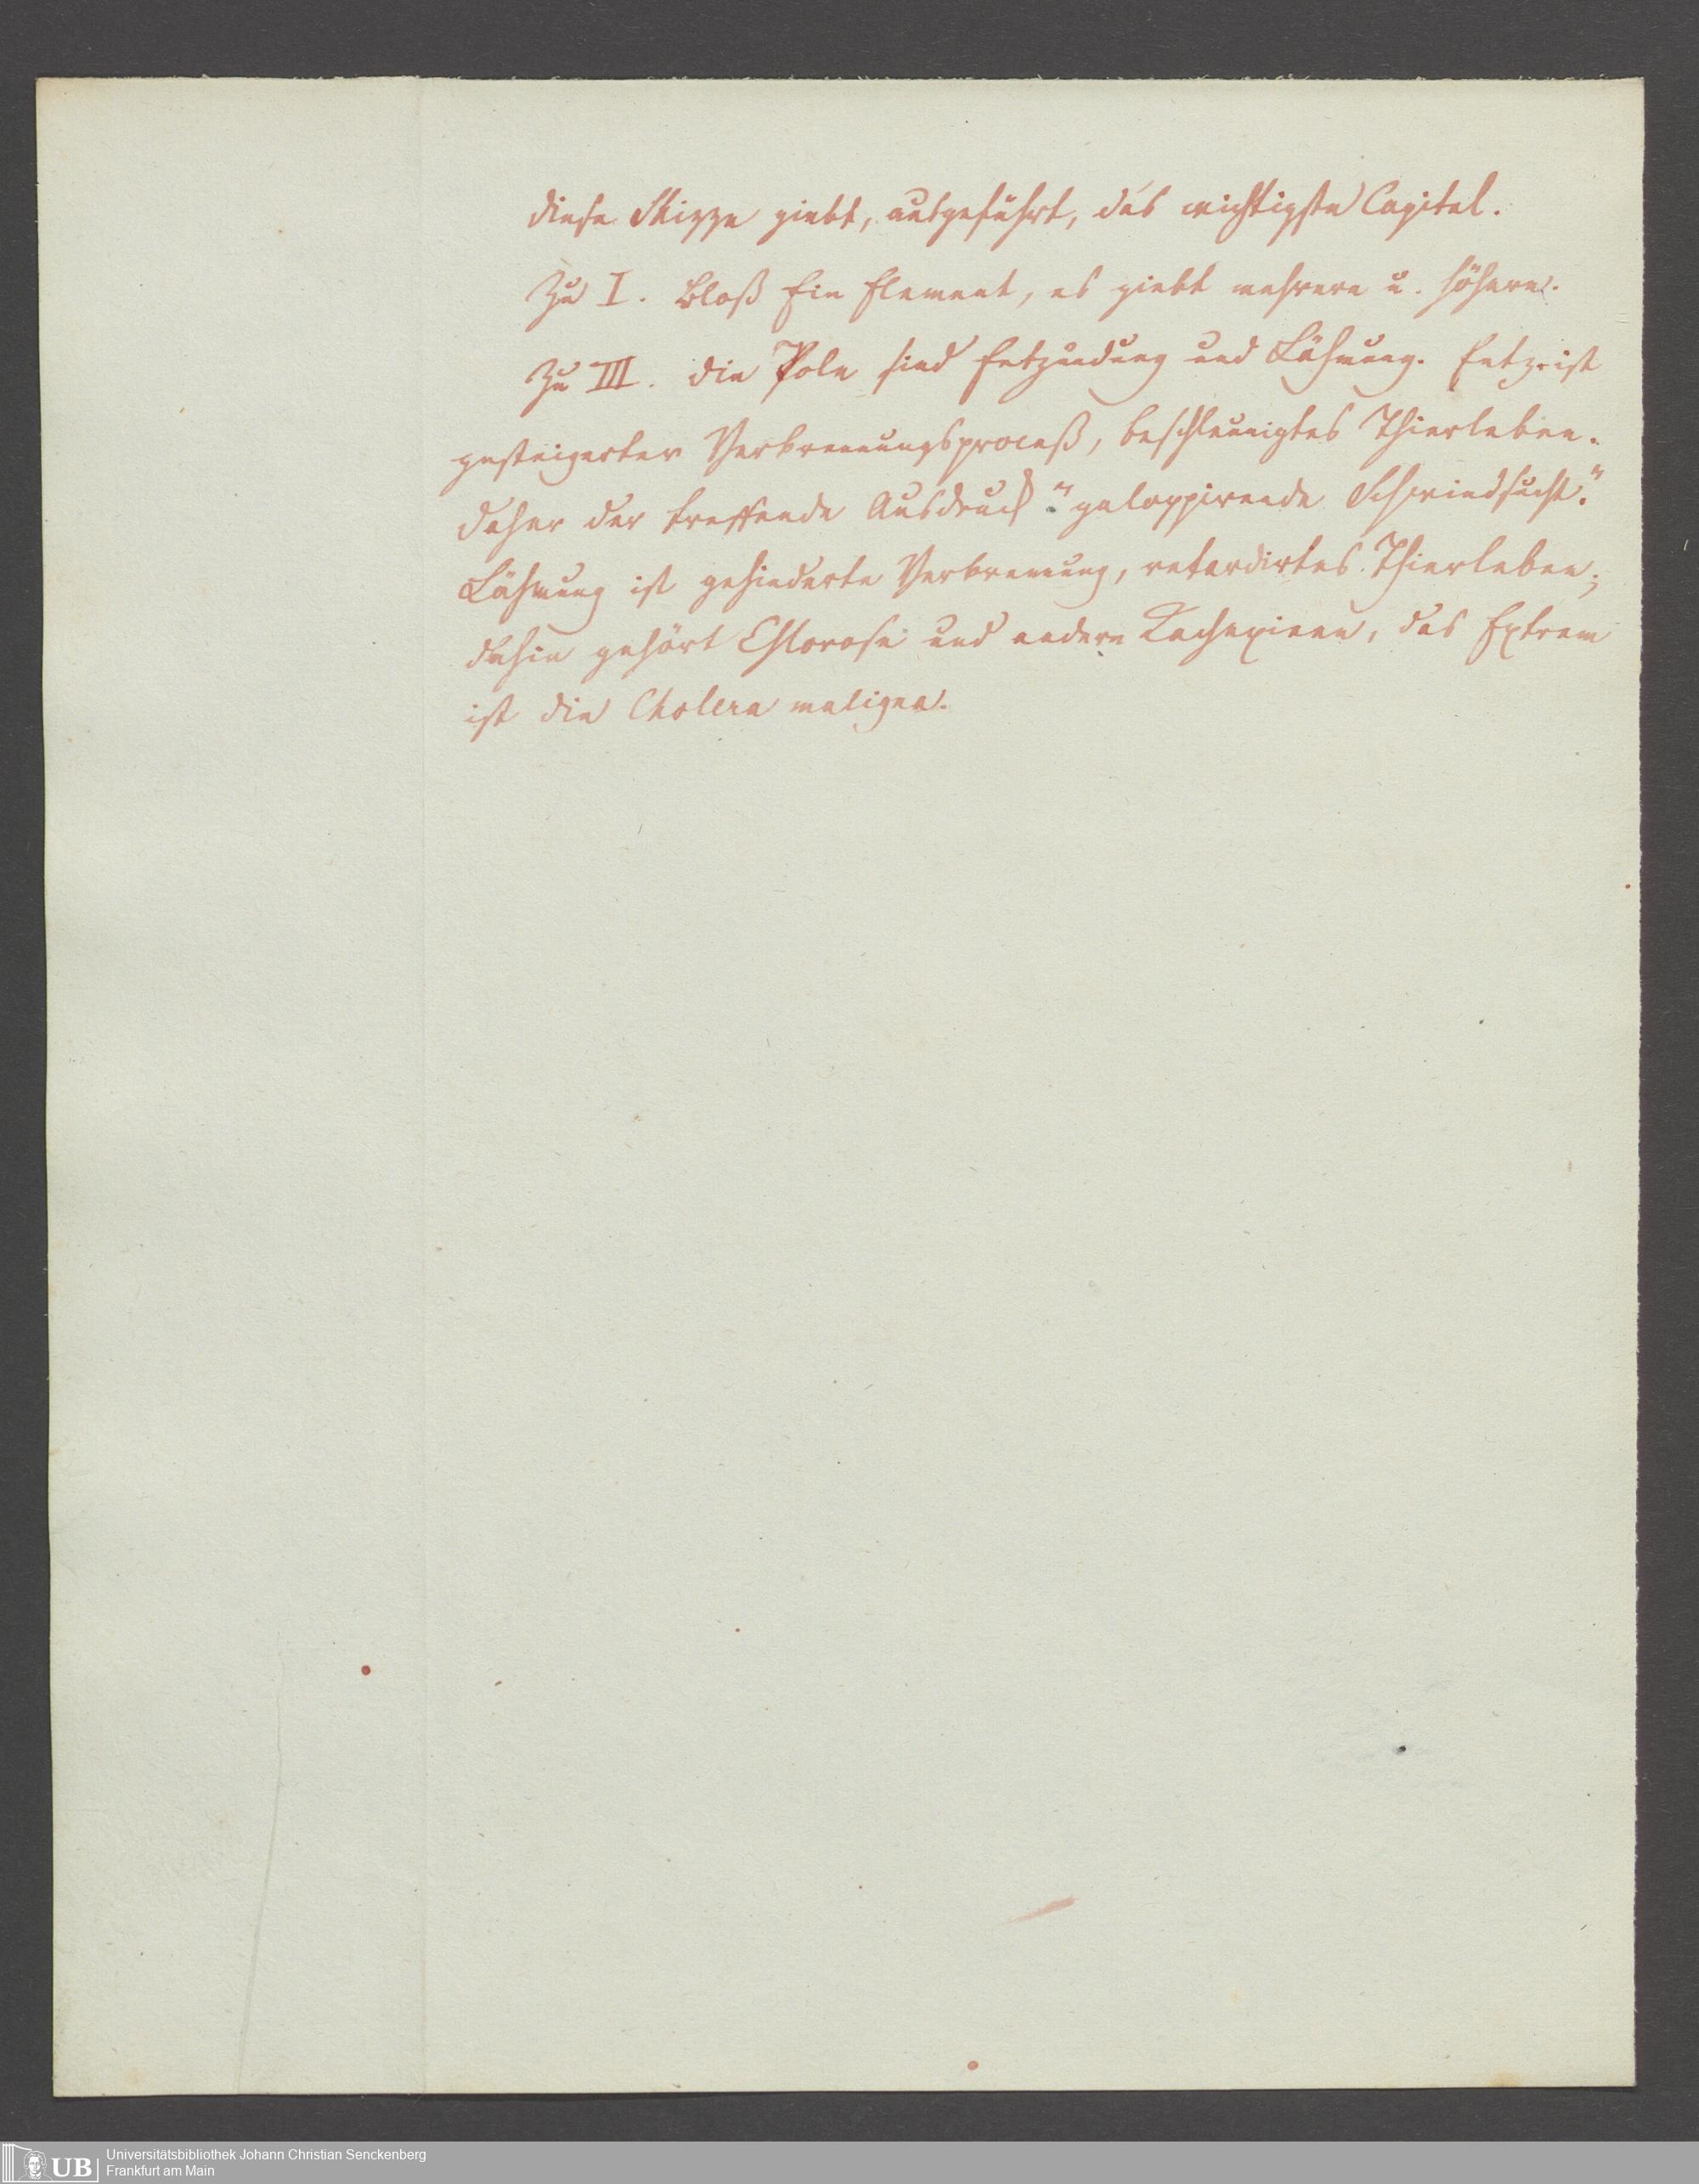 diese Skizze giebt, ausgeführt, das wichtigste Capitel.
Zu I. Bloß Ein Element, es giebt mehrere u. höhere.
Zu III. die Pole sind Entzündung und Lähmung. Entz. ist
gesteigerter Verbrennungsproceß, beschleunigtes Thierleben.
daher der treffende Ausdruck "galoppirende Schwindsucht."
Lähmung ist gehinderte Verbrennung, retardirtes Thierleben;
dahin gehört Chlorose und andere Kachexieen, das Extrem
ist die Cholera maligna.
UB Universitätsbibliothek Johann Christian Senckenberg
Frankfurt am Main